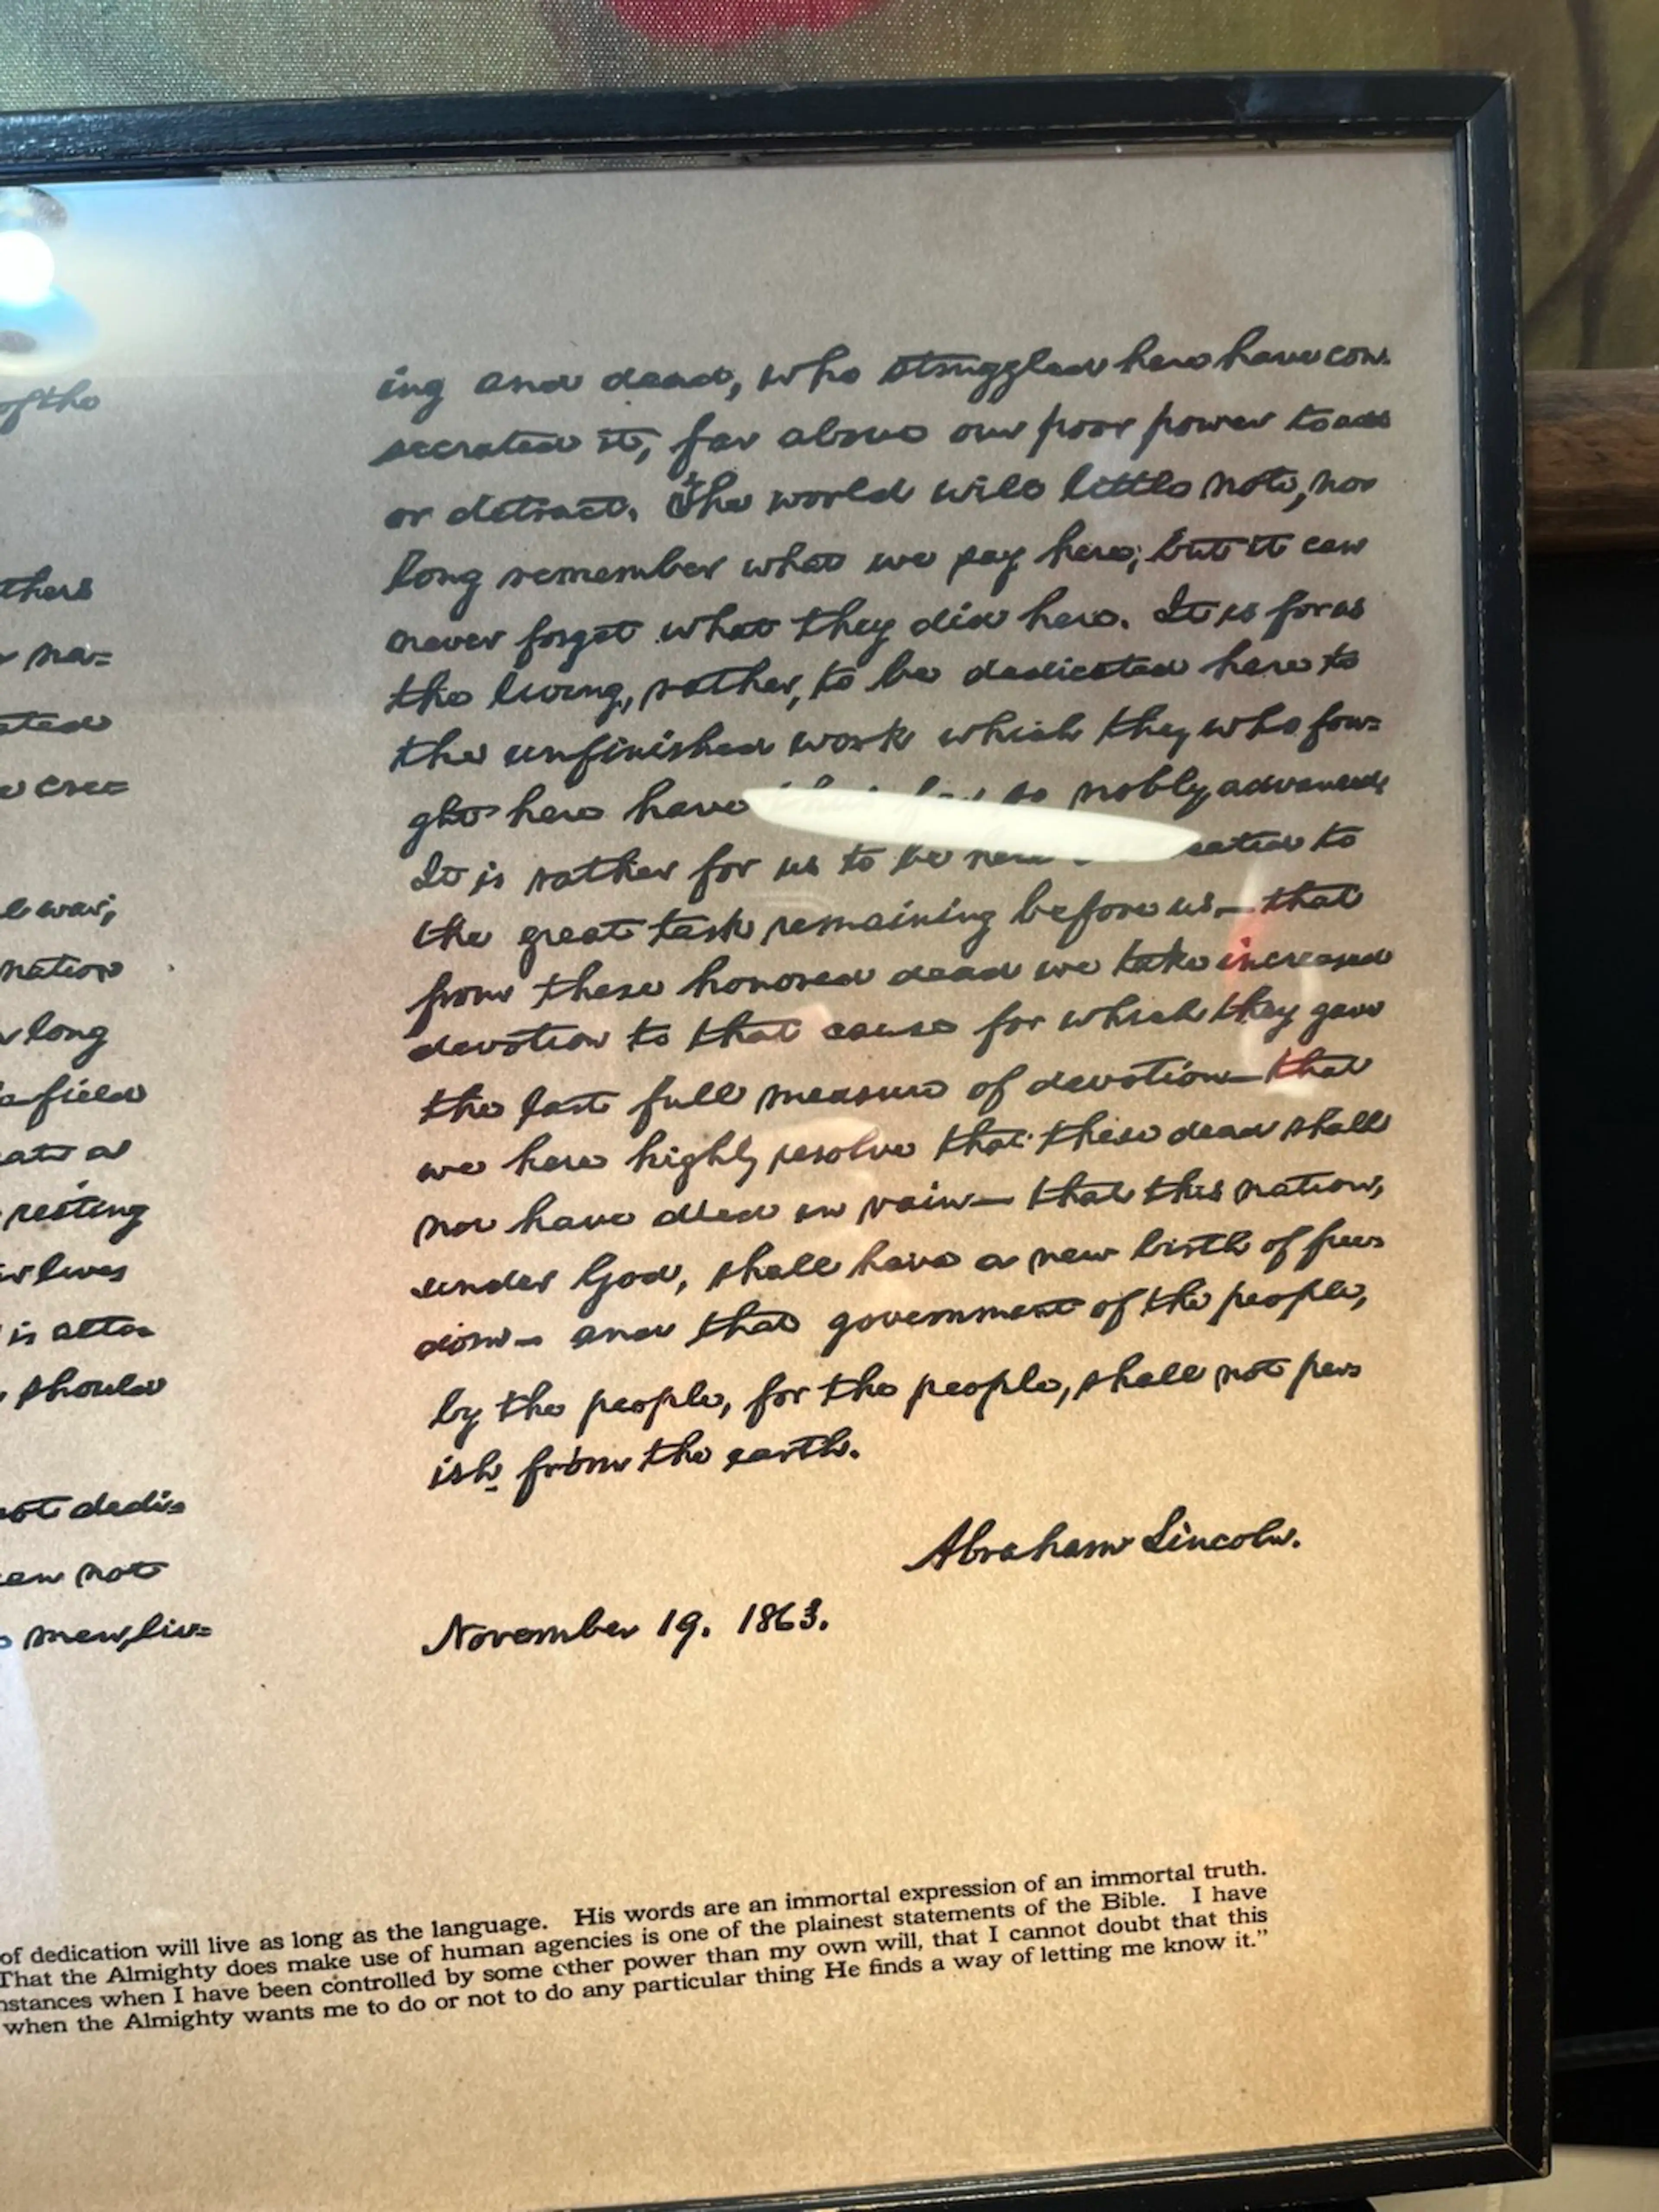 of the
thers
na=
ated
e crea=
war;
nation
long
a field
ate a
resting
lives
is alto=
should
not dedi=
can not
men, liv=
ing and dead, who struggled here have con=
secrated it, far above our poor power to add
or detract. The world will little note, nor
long remember what we say here, but it can
never forget what they did here. It is for us
the living, rather, to be dedicated here to
the unfinished work which they who fou=
ght here have so nobly advanced.
It is rather for us to be here to
the great task remaining before us— that
from these honored dead we take increased
devotion to that cause for which they gave
the last full measure of devotion— that
we here highly resolve that these dead shall
not have died in vain— that this nation,
under God, shall have a new birth of free=
dom— and that government of the people,
by the people, for the people, shall not per=
ish from the earth.
Abraham Lincoln.
November 19. 1863.
of dedication will live as long as the language. His words are an immortal expression of an immortal truth.
That the Almighty does make use of human agencies is one of the plainest statements of the Bible. I have
nstances when I have been controlled by some other power than my own will, that I cannot doubt that this
when the Almighty wants me to do or not to do any particular thing He finds a way of letting me know it."